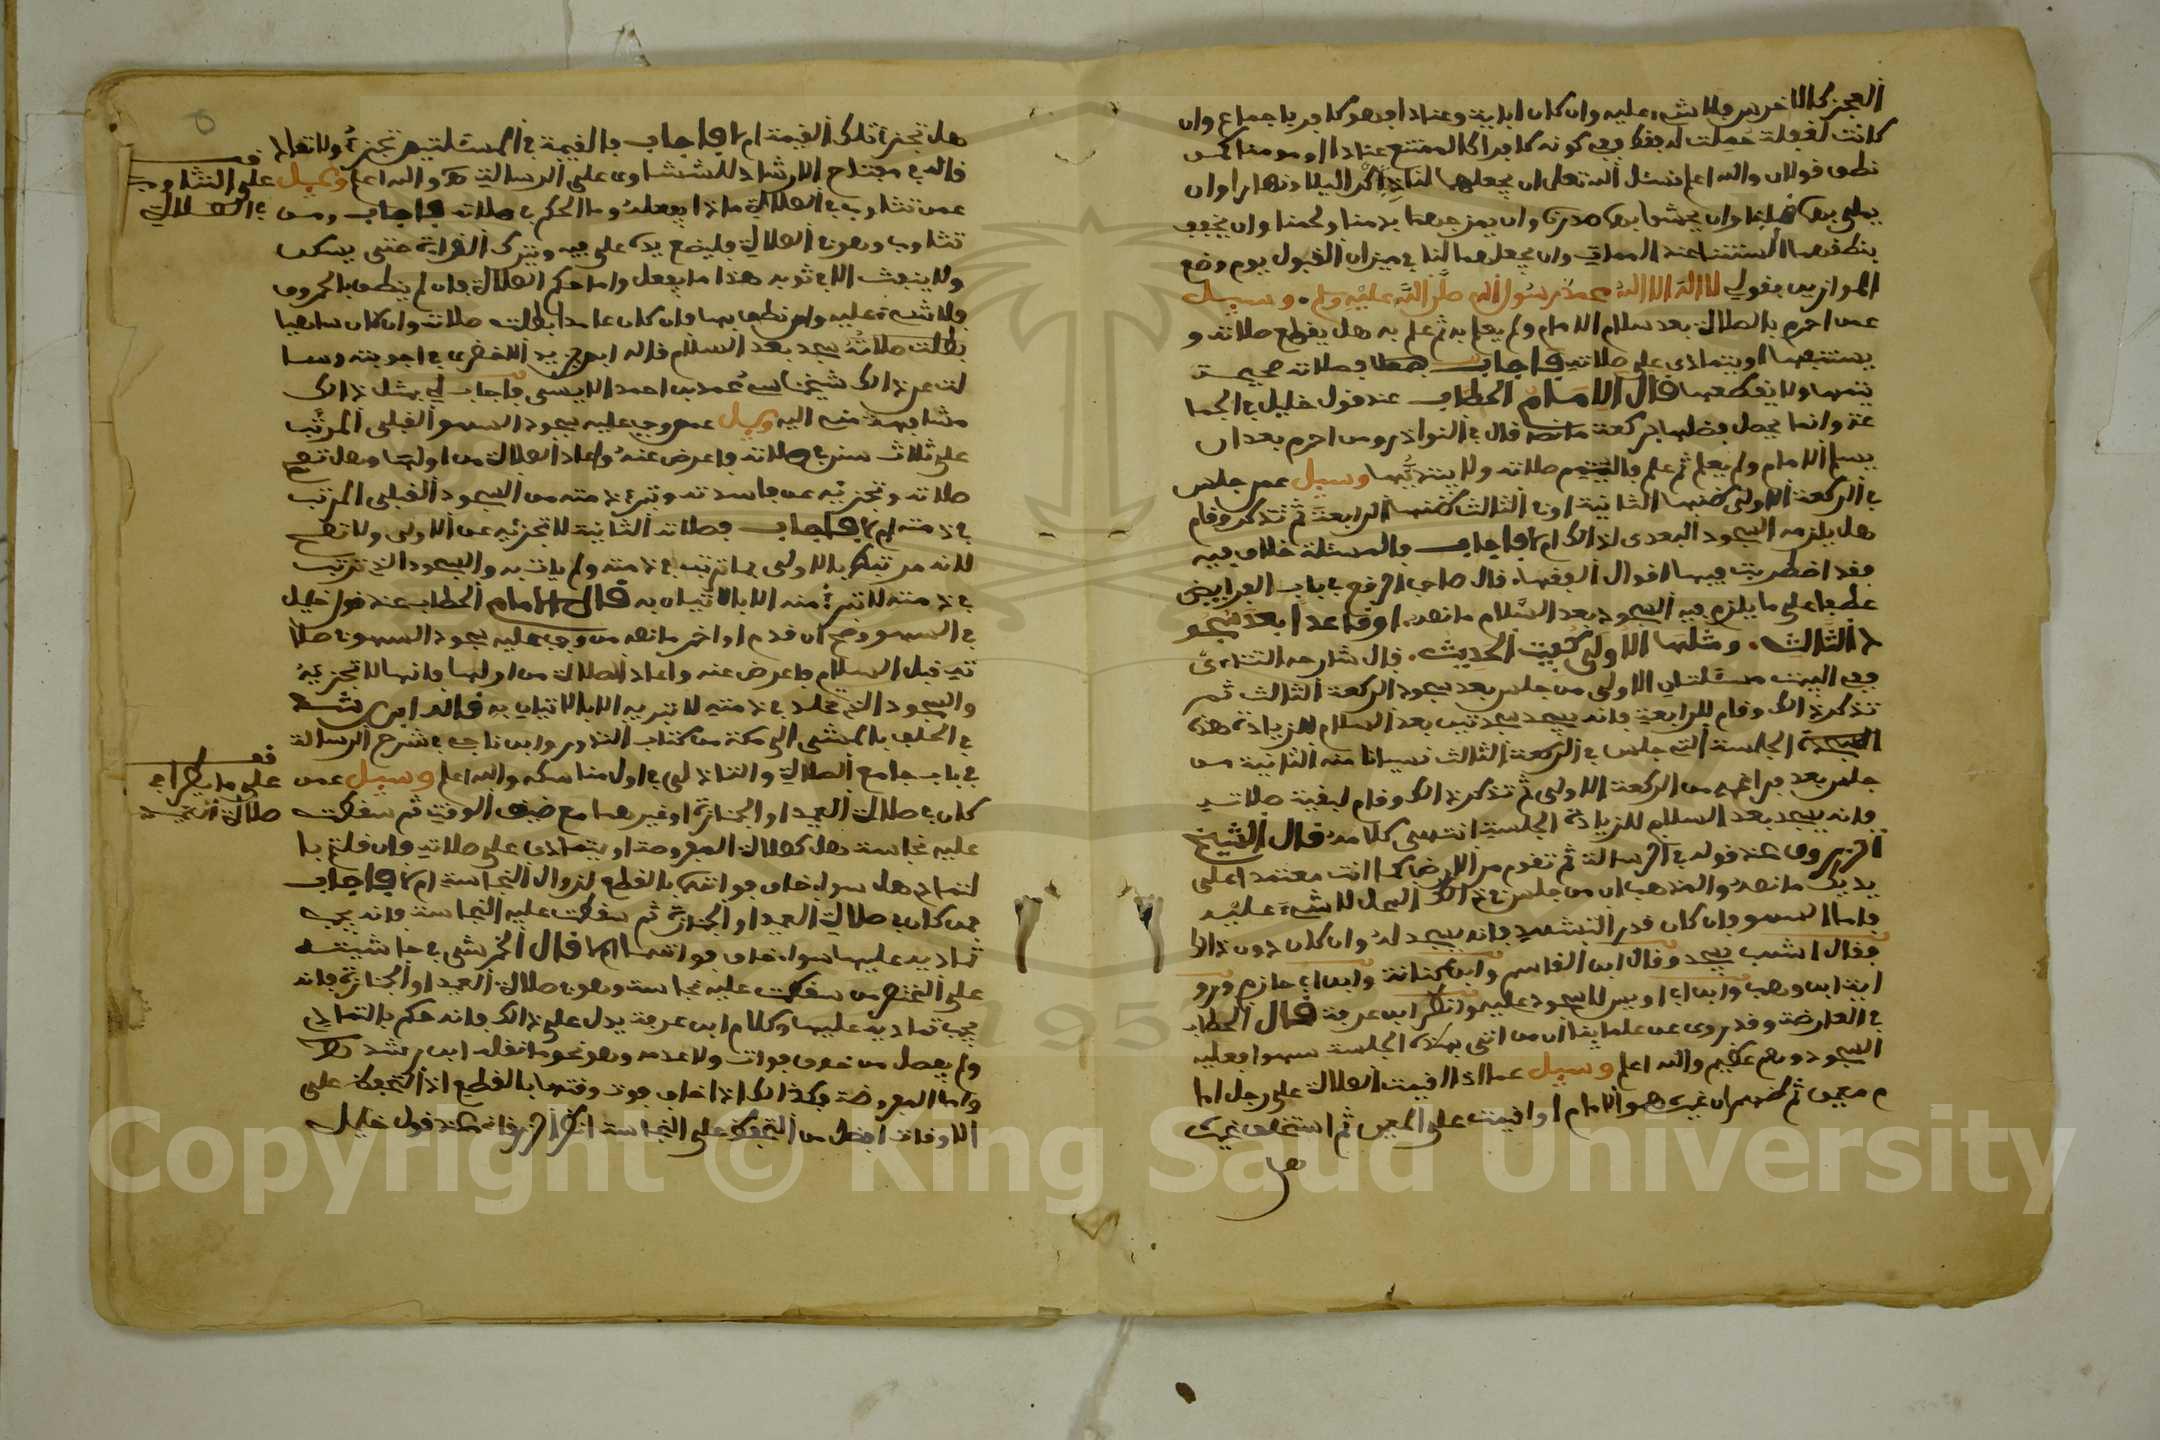 العجز كالاخرس فلا شيء عليه وان كان اباية وعنادا فهو كافر باجماع وان
كانت لغفلة حملت له فقط ففي كونه كافرا كالممتنع عنادا او مومنا كمن
نطق قولان والله اعلم نسئل الله تعلى ان يجعلها لنا ذاكر اليلا ونهارا وان
يملي بها قلبنا وان يحشوا بها صدرنا وان يمزجها بدمنا ولحمنا وان يخفف
بنطقها السنتنا عند الممات وان يجعلها لنا في ميزان القبول يوم وضع
الموازين بقولي لا اله الا الله محمد رسول الله صلى الله عليه وسلم . وسيل
عمن احرم بالصلاة بعد سلام الامام ولم يعلم به ثم علم به هل يقطع صلاته و
يستنبها او يتمادى على صلاته فاجاب بصلاته صحيحة
يتمها ولا يقطعها قال الامام الحطاب عند قول خليل في الجما
عة وانما يحصل فضلها بركعة مانصه قال في النوادر ومن احرم بعد ان
يسلم الامام ولم يعلم ثم علم فاليتم صلاته ولا يبتديها وسيل عمن جلس
في الركعة الاولى ظنها الثانية او في الثالث ظنها الرابعة ثم تذكر وقام
هل يلزمه السجود البعدى لذالك ام لا فاجاب فالمسئلة خلاف فيه
فقد اضطربت فيها اقوال الفقهاء قال صاحب الرفع في باب الفرايض
عطفا على ما يلزم فيه السجود بعد السلام مانصه . او قاعدا بعد سجو
د الثالث . ومثلها الاولى كفيت الحديث . قال شارحه التتاءى
ففي البيت مسئلتان الاولى من جلس بعد سجود الركعة الثالث ثم
تذكر ذالك وقام للرابعة فانه يسجد سجدتين بعد السلام للزيادة هذه
الجلسة التي جلس في الركعة الثالث نسيانا منه الثانية من
جلس بعد فراغه من الركعة الاولى ثم تذكر ذالك وقام لبقية صلاته
فانه يسجد بعد السلام للزيادة الجلسة انتهى كلامه قال الشيخ
الزروق عند قوله في الرسالة ثم تقوم من الارض كما انت معتمدا على
يديك مانصه والمذهب ان من جلس في ذالك المحل لا شيء عليه
فاما السهو فان كان قدر التشهد فانه يسجد له وان كان دون ذالك
فقال اشهب يسجد وقال ابن القاسم وابن كنانة وابن ابي حازم ورو
اية ابن وهب وابن ابي اويس لا سجود عليه وانظر ابن عرفة قال الحطاب
في العارضة وقد روى عن علماينا ان من اتى بهذه الجلسة سهوا فعليه
السجود وهم عظيم والله اعلم وسيل عما اذا اقيمت الصلاة على رجل اما
م معين ثم ظهر ان غيره هو الامام او اقيمت على المعين ثم استخلف غيره
هل
هل تجزء تلك القيمة ام لا فاجاب فالقيمة في المسئلتين تجزء ولا تعاد
قاله في مفتاح الارشاد للششاوى على الرسالة والله اعلم وسيل
عمن تثاوب في الصلاة ماذا يفعله وما الحكم في صلاته فاجاب ومن
تثاوب وهو في الصلاة فليضع يده على فيه ويترك القراة حتى يسكن
ولا ينفث الا في ثوبه هذا ما يفعل واما حكم الصلاة فان لم ينطق بالحروف
فلا شيء عليه وان نطق بها فان كان عامدا بطلت صلاته وان كان ساهيا
بطلت صلاته يسجد بعد السلام قاله ابو زيد الاخضرى في اجوبته وسا
لت عن ذالك شيخنا محمد بن احمد فاجاب لي بمثل ذالك
مشافهة منه اليه وسيل عمن وجب عليه سجود السهو القبلي المرتب
على ثلاث سنن في صلاته فاعرض عنه واعاد الصلاة من اولها وهل تصح
صلاته وتجزيه عن فاسدته وتبرء ذمته من السجود القبلي المرتب
في ذمته ام لا فاجاب فصلاته الثانية لا تجزيه عن الاولى ولا تصح
لانه مرتبط بالاولى بما ترتب في ذمته ولم يات به والسجود الذي ترتب
في ذمته لا تبرء منه الا بالاتيان به قال الامام الحطاب عند قول خليل
في السهو وصح ان قدم او اخر مانصه من وجب عليه سجود السهو في صلا
ته قبل السلام فاعرض عنه واعاد الصلاة من اولها فانها لا تجزيه
والسجود الذي في ذمته لا تبريه الا بالاتيان به قاله ابن رشد
في الحلف بالمشي الى مكة من كتاب النذور وابن ناجي في شرح الرسالة
في باب جامع الصلاة والتادلي في اول مناسكه والله اعلم وسيل عمن
كان في صلاة العيد او الجنازة او غيرهما مع ضيف الوقت ثم سقطت
عليه نجاسة وهل كصلاة المفروضة او يتمادى على صلاته فان قلتم با
لتماد هل سواء خاف فواتها بالقطع لزوال النجاسة ام لا فاجاب
فمن كان في صلاة العيد او الجنازة ثم سقطت عليه النجاسة فانه يجب
تماديه عليها سواء خاف فواتها ام لا قال الخرشي في حاشيته
على المختصر من سقطت عليه نجاسة وهو في صلاة العيد او الجنازة فانه
يجب تماديه عليها وكلام ابن عرفة يدل على ذالك فانه حكم بالتمادي
ولم يفصل من خوف فوات ولا عدمه وهو نحو ما نقله ابن رشد
واما المفروضة فكذالك اذا خاف فوت وقتها بالقطع اذ التحفظ على
الاوقات افضل من التحفظ على النجاسة انظر الزرقاني عند قول خليل
قف
على التثاوب
في الصلاة
قف
على ما يطرا في
صلاة العيد